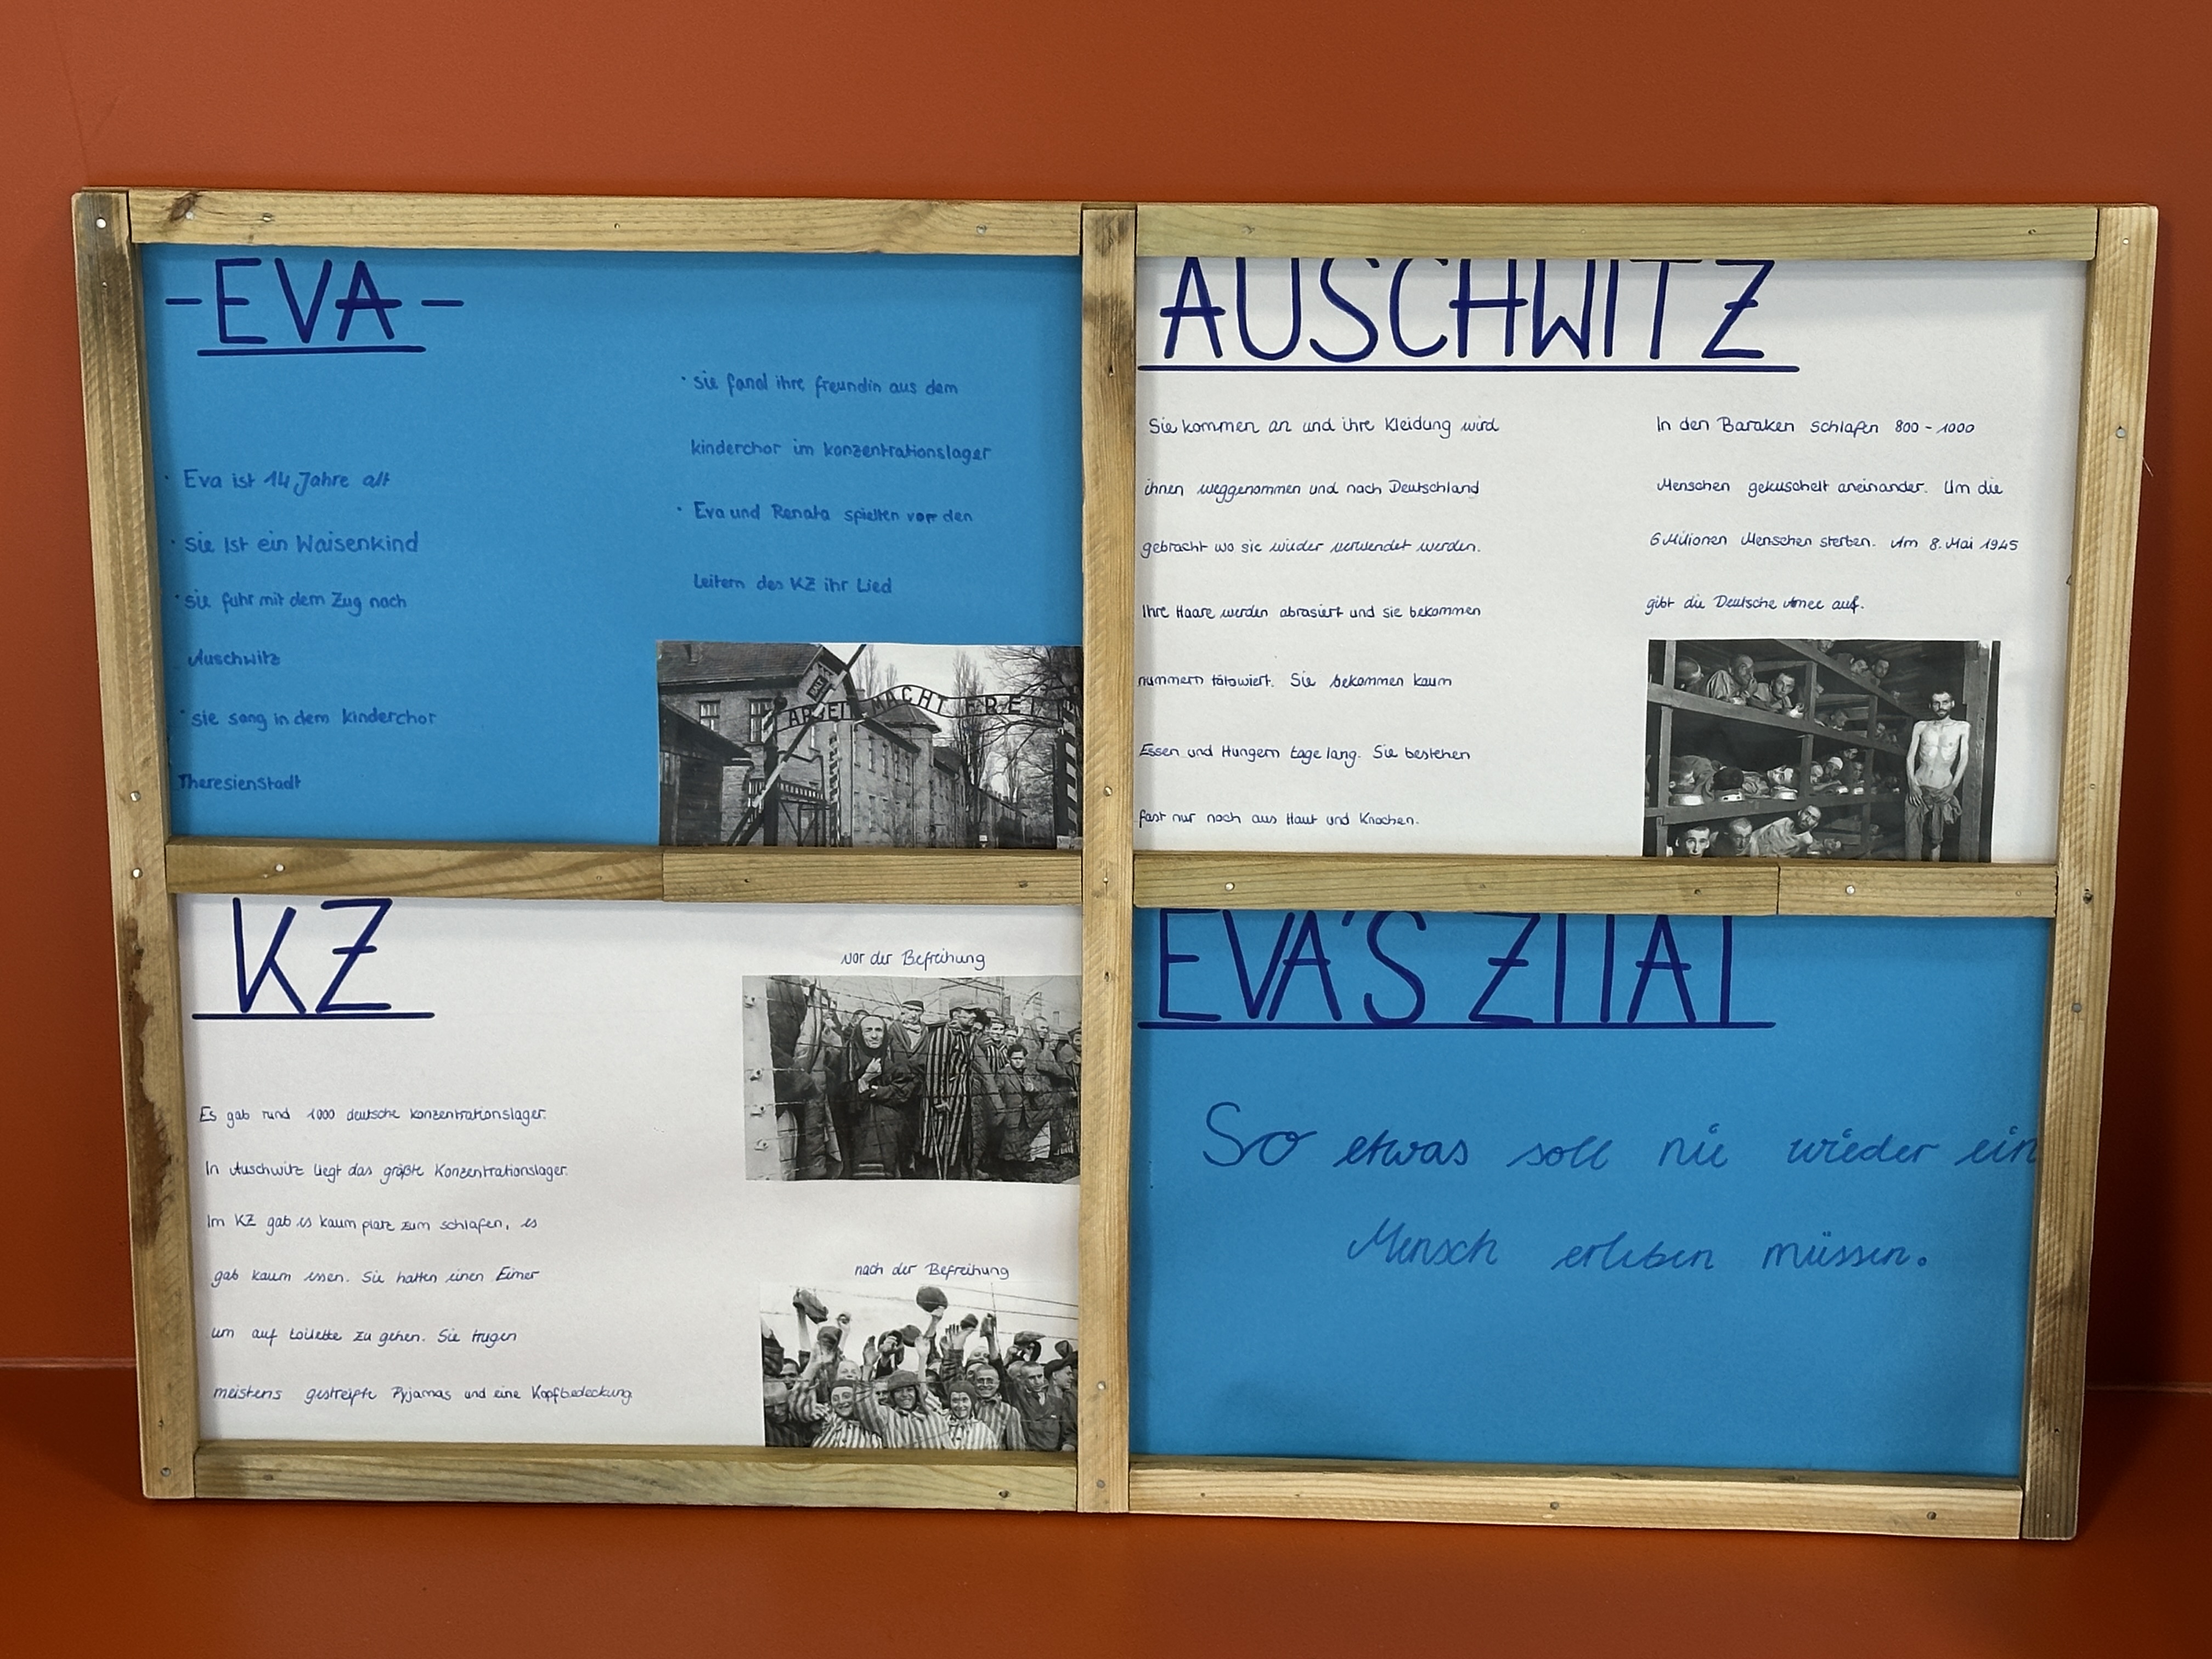 -EVA-
· Eva ist 14 Jahre alt
· sie Ist ein Waisenkind
· sie fuhr mit dem Zug nach
Auschwitz
· sie sang in dem kinderchor
Theresienstadt
· sie fand ihre freundin aus dem
kinderchor im konzentrationslager
· Eva und Renata spielten vor den
Leitern des KZ ihr Lied
ARBEIT MACHT FREI
HALT
AUSCHWITZ
Sie kommen an und ihre Kleidung wird
ihnen weggenommen und nach Deutschland
gebracht wo sie wieder verwendet werden.
Ihre Haare werden abrasiert und sie bekommen
nummern tätowiert. Sie bekommen kaum
Essen und Hungern tage lang. Sie bestehen
fast nur noch aus Haut und Knochen.
In den Baraken schlafen 800-1000
Menschen gekuschelt aneinander. Um die
6 Milionen Menschen sterben. Am 8. Mai 1945
gibt die Deutsche Amee auf.
KZ
Es gab rund 1000 deutsche konzentrationslager.
In Auschwitz liegt das größte Konzentrationslager.
Im KZ gab es kaum platz zum schlafen, es
gab kaum essen. Sie hatten einen Eimer
um auf toilette zu gehen. Sie trugen
meistens gestreifte Pyjamas und eine Kopfbedeckung
vor der Befreihung
nach der Befreihung
EVA'S ZITAT
So etwas soll nie wieder ein
Mensch erleben müssen.